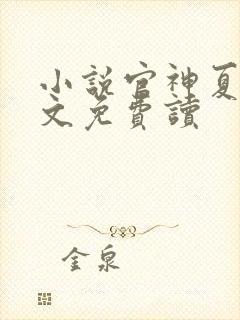 小說官神夏
文免費讀
金泉